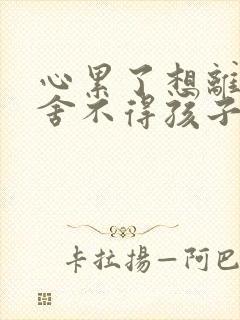 心累了想離
舍不得孩子
卡拉揚—阿巴